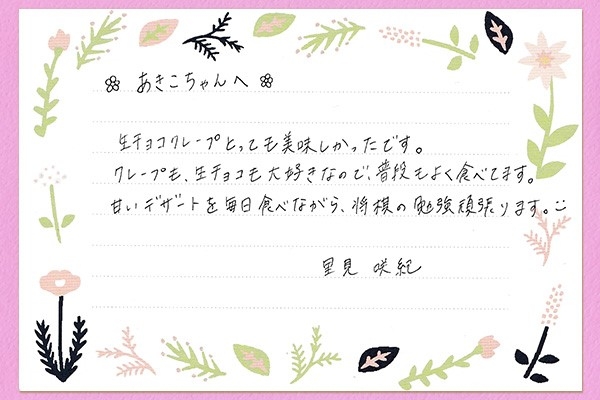 あきこちゃんへ
生チョコクレープとっても美味しかったです。
クレープも、生チョコも大好きなので、普段もよく食べてます。
甘いデザートを毎日食べながら、将棋の勉強頑張ります。
里見 咲紀